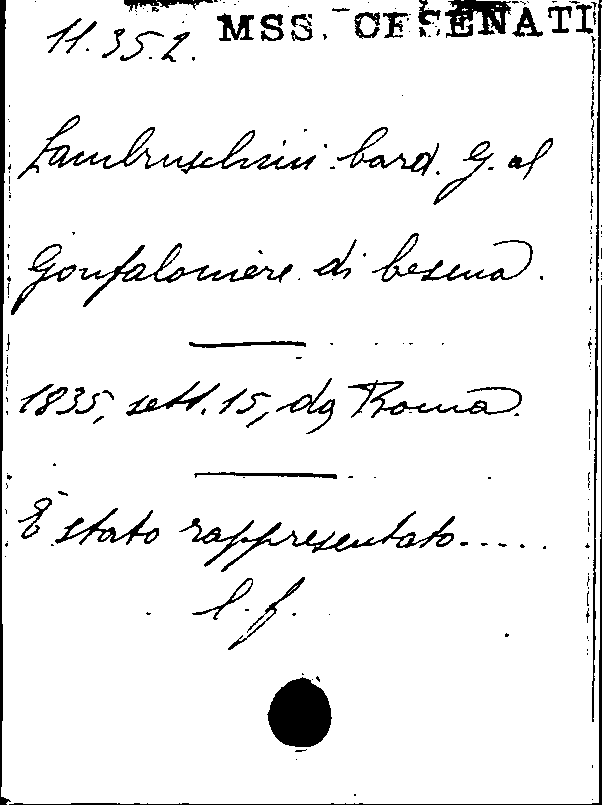 11.35.2. MSS. CESENATI
Lambruschini Card. G. al
Gonfaloniere di Cesena.
1835, sett. 15, da Roma.
È stato rappresentato.....
l. f.